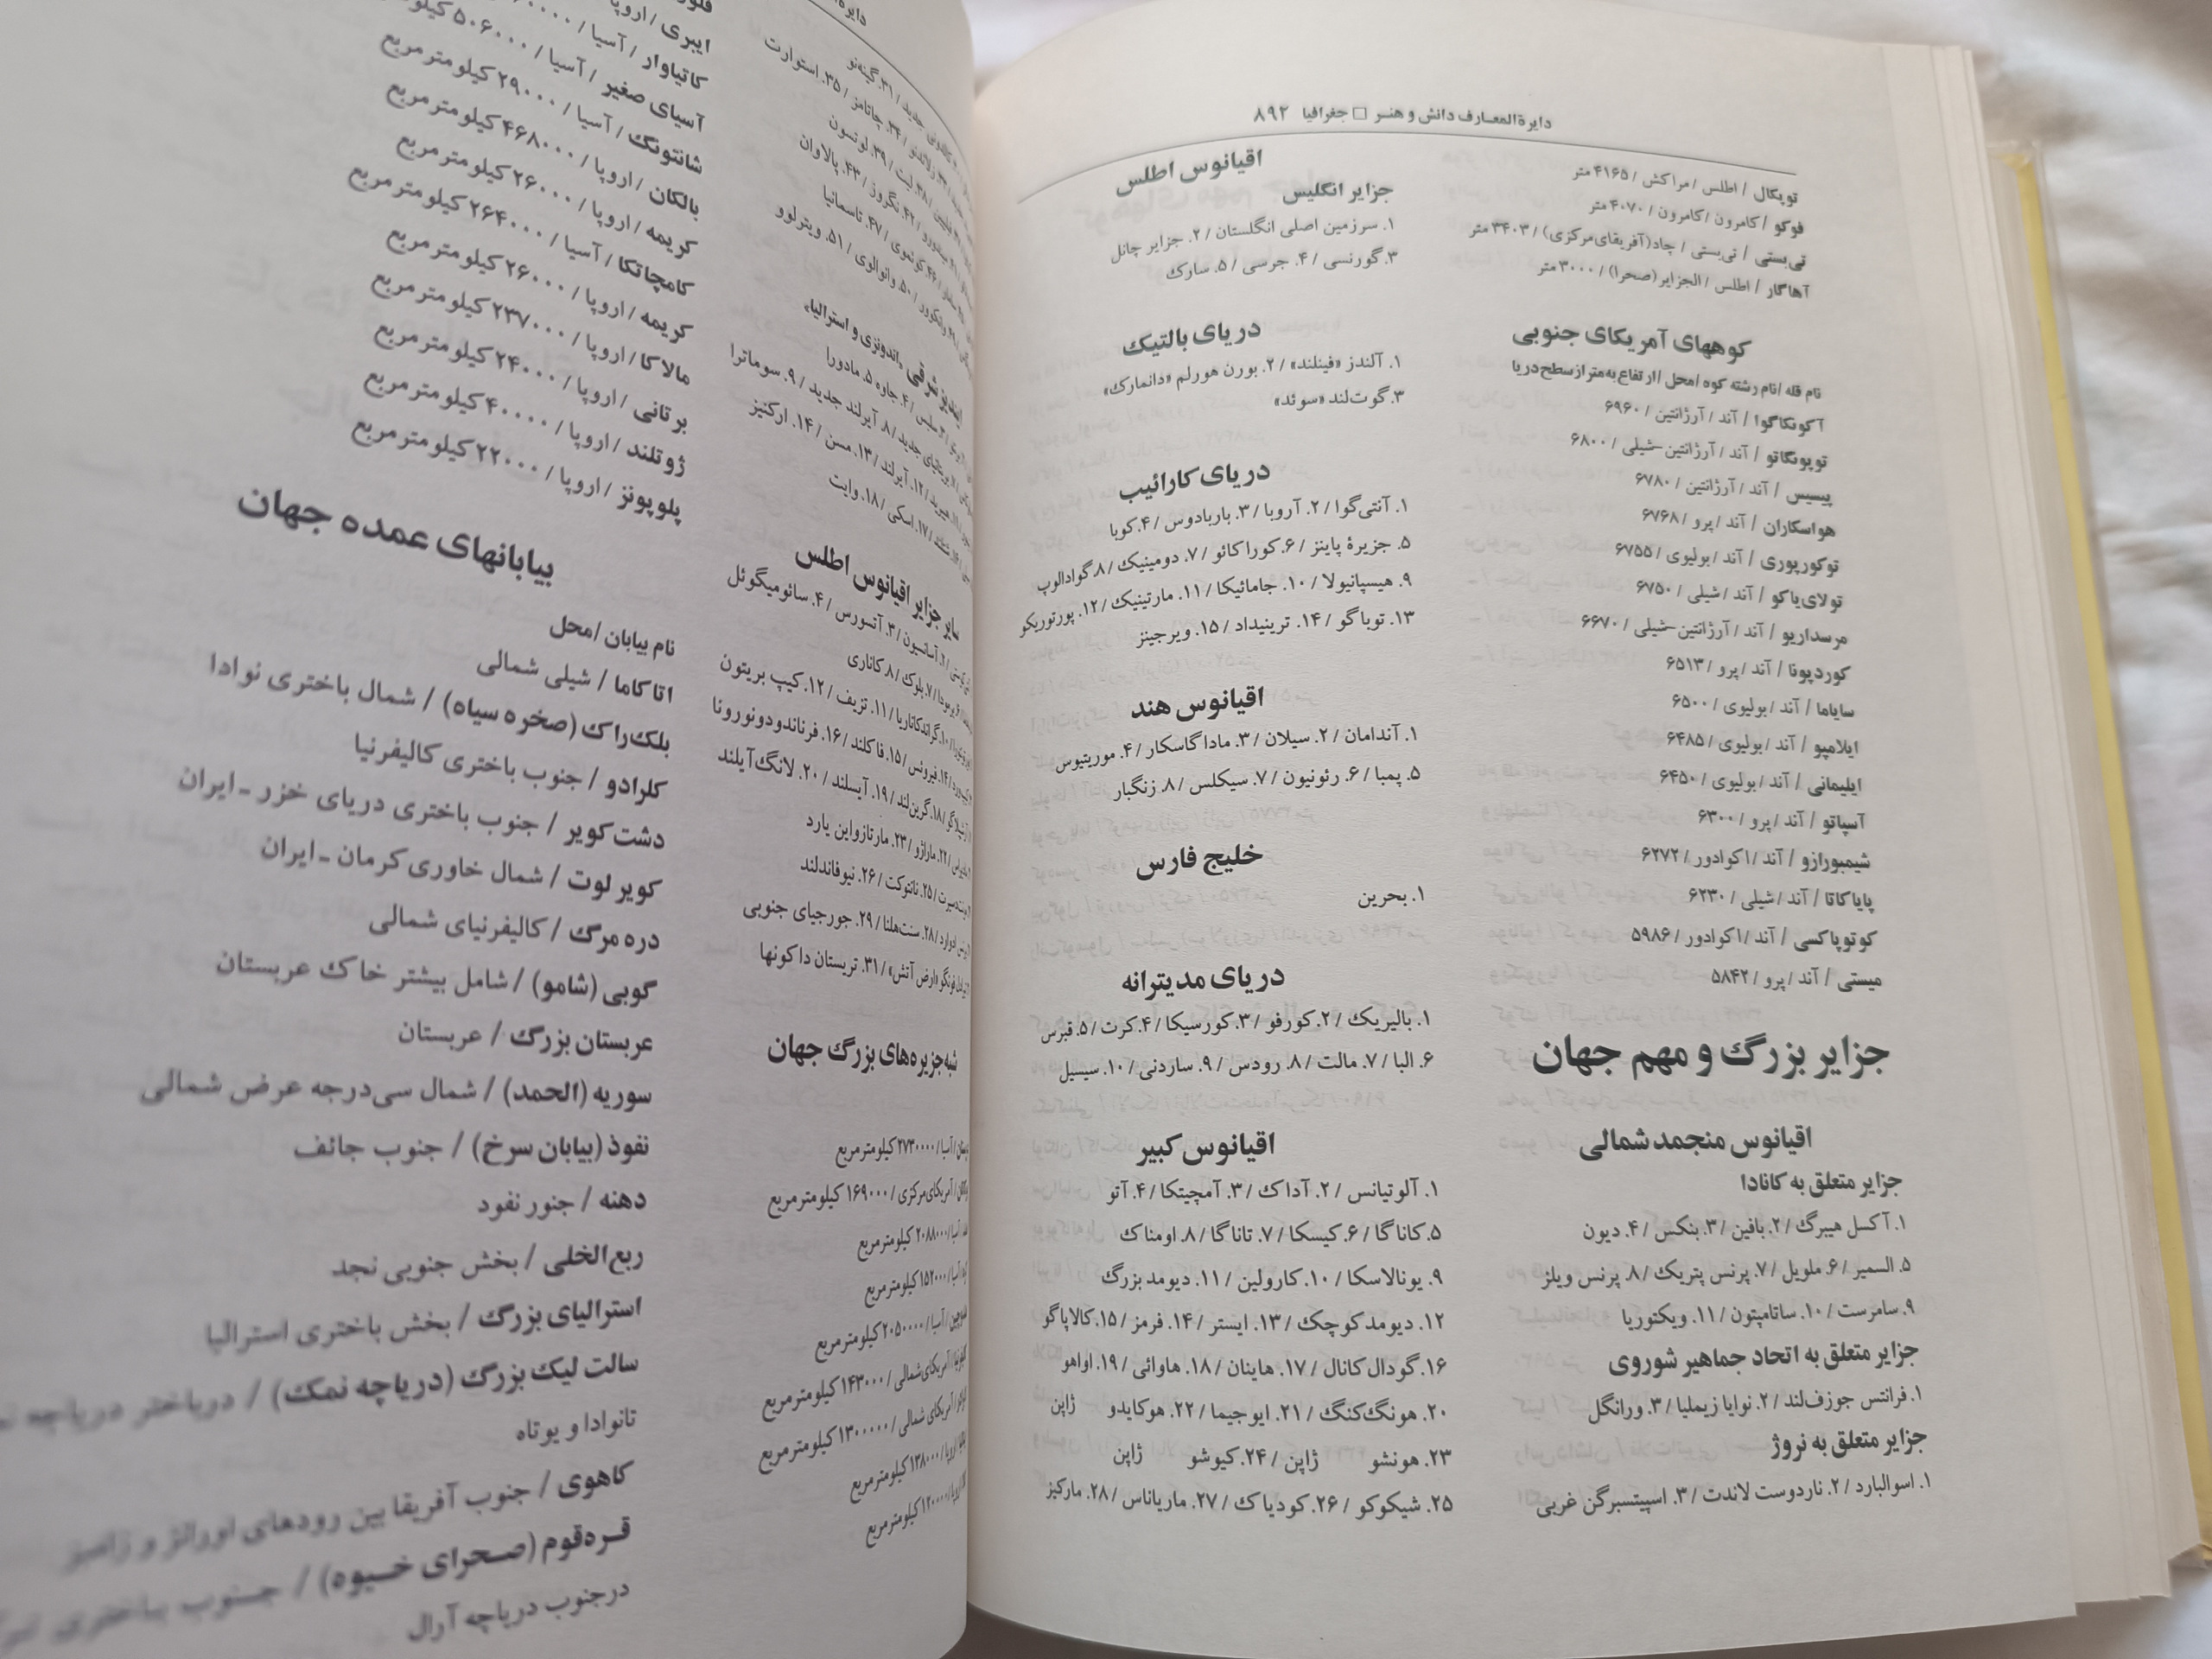 دایرةالمعارف دانش و هنر □ جغرافیا ۸۹۲
توبکال / اطلس / مراکش / ۴۱۶۵ متر
فوکو / کامرون / کامرون / ۴۰۷۰ متر
تی‌بستی / تی‌بستی / چاد(آفریقای‌مرکزی) / ۳۴۰۳ متر
آهاگار / اطلس / الجزایر (صحرا) / ۳۰۰۰ متر
کوههای آمریکای جنوبی
نام قله /نام رشته کوه /محل /ارتفاع به‌متر از سطح دریا
آکونکاگوا / آند / آرژانتین / ۶۹۶۰
توپونگاتو / آند / آرژانتین-شیلی / ۶۸۰۰
پیسیس / آند / آرژانتین / ۶۷۸۰
هواسکاران / آند / پرو / ۶۷۶۸
توکورپوری / آند / بولیوی / ۶۷۵۵
تولای‌یاکو / آند / شیلی / ۶۷۵۰
مرسداریو / آند / آرژانتین-شیلی / ۶۶۷۰
کوردپونا / آند / پرو / ۶۵۱۳
سایاما / آند / بولیوی / ۶۵۰۰
ایلامپو / آند / بولیوی / ۶۴۸۵
ایلیمانی / آند / بولیوی / ۶۴۵۰
آسپاتو / آند / پرو / ۶۳۰۰
شیمبورازو / آند / اکوادور / ۶۲۷۲
پایاکاتا / آند / شیلی / ۶۲۳۰
کوتوپاکسی / آند / اکوادور / ۵۹۸۶
میستی / آند / پرو / ۵۸۴۲
جزایر بزرگ و مهم جهان
اقیانوس منجمد شمالی
جزایر متعلق به کانادا
۱. آکسل هیبرگ / ۲. بافین / ۳. بنکس / ۴. دیون
۵. السمیر / ۶. ملویل / ۷. پرنس پتریک / ۸. پرنس ویلز
۹. سامرست / ۱۰. ساتامپتون / ۱۱. ویکتوریا
جزایر متعلق به اتحاد جماهیر شوروی
۱. فرانتس جوزف‌لند / ۲. نوایا زیملیا / ۳. ورانگل
جزایر متعلق به نروژ
۱. اسوالبارد / ۲. ناردوست لاندت / ۳. اسپیتسبرگن غربی
اقیانوس اطلس
جزایر انگلیس
۱. سرزمین اصلی انگلستان / ۲. جزایر چانل
۳. گورنسی / ۴. جرسی / ۵. سارک
دریای بالتیک
۱. آلندز «فینلند» / ۲. بورن هورلم «دانمارک»
۳. گوت‌لند «سوئد»
دریای کارائیب
۱. آنتی‌گوا / ۲. آروبا / ۳. باربادوس / ۴. کوبا
۵. جزیرهٔ پاینز / ۶. کوراکائو / ۷. دومینیک / ۸. گوادالوپ
۹. هیسپانیولا / ۱۰. جامائیکا / ۱۱. مارتینیک / ۱۲. پورتوریکو
۱۳. توباگو / ۱۴. ترینیداد / ۱۵. ویرجینز
اقیانوس هند
۱. آندامان / ۲. سیلان / ۳. ماداگاسکار / ۴. موریتیوس
۵. پمبا / ۶. رئونیون / ۷. سیکلس / ۸. زنگبار
خلیج فارس
۱. بحرین
دریای مدیترانه
۱. بالیریک / ۲. کورفو / ۳. کورسیکا / ۴. کرت / ۵. قبرس
۶. البا / ۷. مالت / ۸. رودس / ۹. ساردنی / ۱۰. سیسیل
اقیانوس کبیر
۱. آلوتیانس / ۲. آداک / ۳. آمچیتکا / ۴. آتو
۵. کاناگا / ۶. کیسکا / ۷. تاناگا / ۸. اومناک
۹. یونالاسکا / ۱۰. کارولین / ۱۱. دیومد بزرگ
۱۲. دیومد کوچک / ۱۳. ایستر / ۱۴. فرمز / ۱۵. کالاپاگو
۱۶. گودال کانال / ۱۷. هاینان / ۱۸. هاوائی / ۱۹. اواهو
۲۰. هونگ‌کنگ / ۲۱. ایوجیما / ۲۲. هوکایدو ژاپن
۲۳. هونشو ژاپن / ۲۴. کیوشو ژاپن
۲۵. شیکوکو / ۲۶. کودیاک / ۲۷. ماریاناس / ۲۸. مارکیز
جدید / ۳۱. گینه‌نو
۳۴. چاتامز / ۳۵. استوارت
۳۸. لیت / ۳۹. لوتسون
۴۲. نگروز / ۴۳. پالاوان
۴۷. تاسمانیا
۵۰. وانوالوی / ۵۱. ویتی‌لوو
ایندیز شرقی «اندونزی و استرالیا»
۴. جاوه ۵. مادورا
۸. آیرلند جدید / ۹. سوماترا
۱۲. آیرلند / ۱۳. مسن / ۱۴. ارکنیز
۱۷. اسکی / ۱۸. وایت
سایر جزایر اقیانوس اطلس
۲. آسانسیون / ۳. آتسورس / ۴. سائومیگوئل
۷. بلوک / ۸. کاناری
۱۰. گراندکاناریا / ۱۱. تزیف / ۱۲. کیپ بریتون
۱۴. فیروئس / ۱۵. فاکلند / ۱۶. فرناندودونورونا
۱۸. گرین‌لند / ۱۹. آیسلند / ۲۰. لانگ‌آیلند
۲۲. ماراژو / ۲۳. مارتازواین یارد
۲۵. نانتوکت / ۲۶. نیوفاندلند
۲۸. سنت‌هلنا / ۲۹. جورجیای جنوبی
«ارض آتش» / ۳۱. تریستان داکونها
شبه‌جزیره‌های بزرگ جهان
آسیا / ۲۷۳۰۰۰۰ کیلومترمربع
آمریکای‌مرکزی / ۱۶۹۰۰۰ کیلومترمربع
آسیا / ۲۰۸۸۰۰۰ کیلومترمربع
آسیا / ۱۵۲۰۰۰ کیلومترمربع
آسیا / ۲۰۵۰۰۰۰ کیلومترمربع
آمریکای‌شمالی / ۱۴۳۰۰۰ کیلومترمربع
آمریکای شمالی / ۱۳۰۰۰۰۰ کیلومترمربع
اروپا / ۱۳۸۰۰۰ کیلومترمربع
اروپا / ۱۲۰۰۰۰ کیلومترمربع
ایبری / اروپا
کاتیاوار / آسیا
آسیای صغیر / آسیا / ۵۰۶۰۰۰
شانتونگ / آسیا / ۲۹۰۰۰ کیلومترمربع
بالکان / اروپا / ۴۶۸۰۰۰ کیلومترمربع
کریمه / اروپا / ۲۶۰۰۰ کیلومترمربع
کامچاتکا / آسیا / ۲۶۴۰۰۰ کیلومترمربع
کریمه / اروپا / ۲۶۰۰۰ کیلومترمربع
مالاکا / اروپا / ۲۳۷۰۰۰ کیلومترمربع
برتانی / اروپا / ۲۴۰۰۰ کیلومترمربع
ژوتلند / اروپا / ۴۰۰۰۰ کیلومترمربع
پلوپونز / اروپا / ۲۲۰۰۰ کیلومترمربع
بیابانهای عمده جهان
نام بیابان /محل
اتاکاما / شیلی شمالی
بلک‌راک (صخره سیاه) / شمال باختری نوادا
کلرادو / جنوب باختری کالیفرنیا
دشت کویر / جنوب باختری دریای خزر ـ ایران
کویر لوت / شمال خاوری کرمان ـ ایران
دره مرگ / کالیفرنیای شمالی
گوبی (شامو) / شامل بیشتر خاک عربستان
عربستان بزرگ / عربستان
سوریه (الحمد) / شمال سی‌درجه عرض شمالی
نفوذ (بیابان سرخ) / جنوب جائف
دهنه / جنور نفود
ربع‌الخلی / بخش جنوبی نجد
استرالیای بزرگ / بخش باختری استرالیا
سالت لیک بزرگ (دریاچه نمک) / درباختر دریاچه
تانوادا و یوتاه
کاهوی / جنوب آفریقا بین رودهای اورانژ و زامبز
قره‌قوم (صحرای خیوه) / جنوب باختری
درجنوب دریاچه آرال